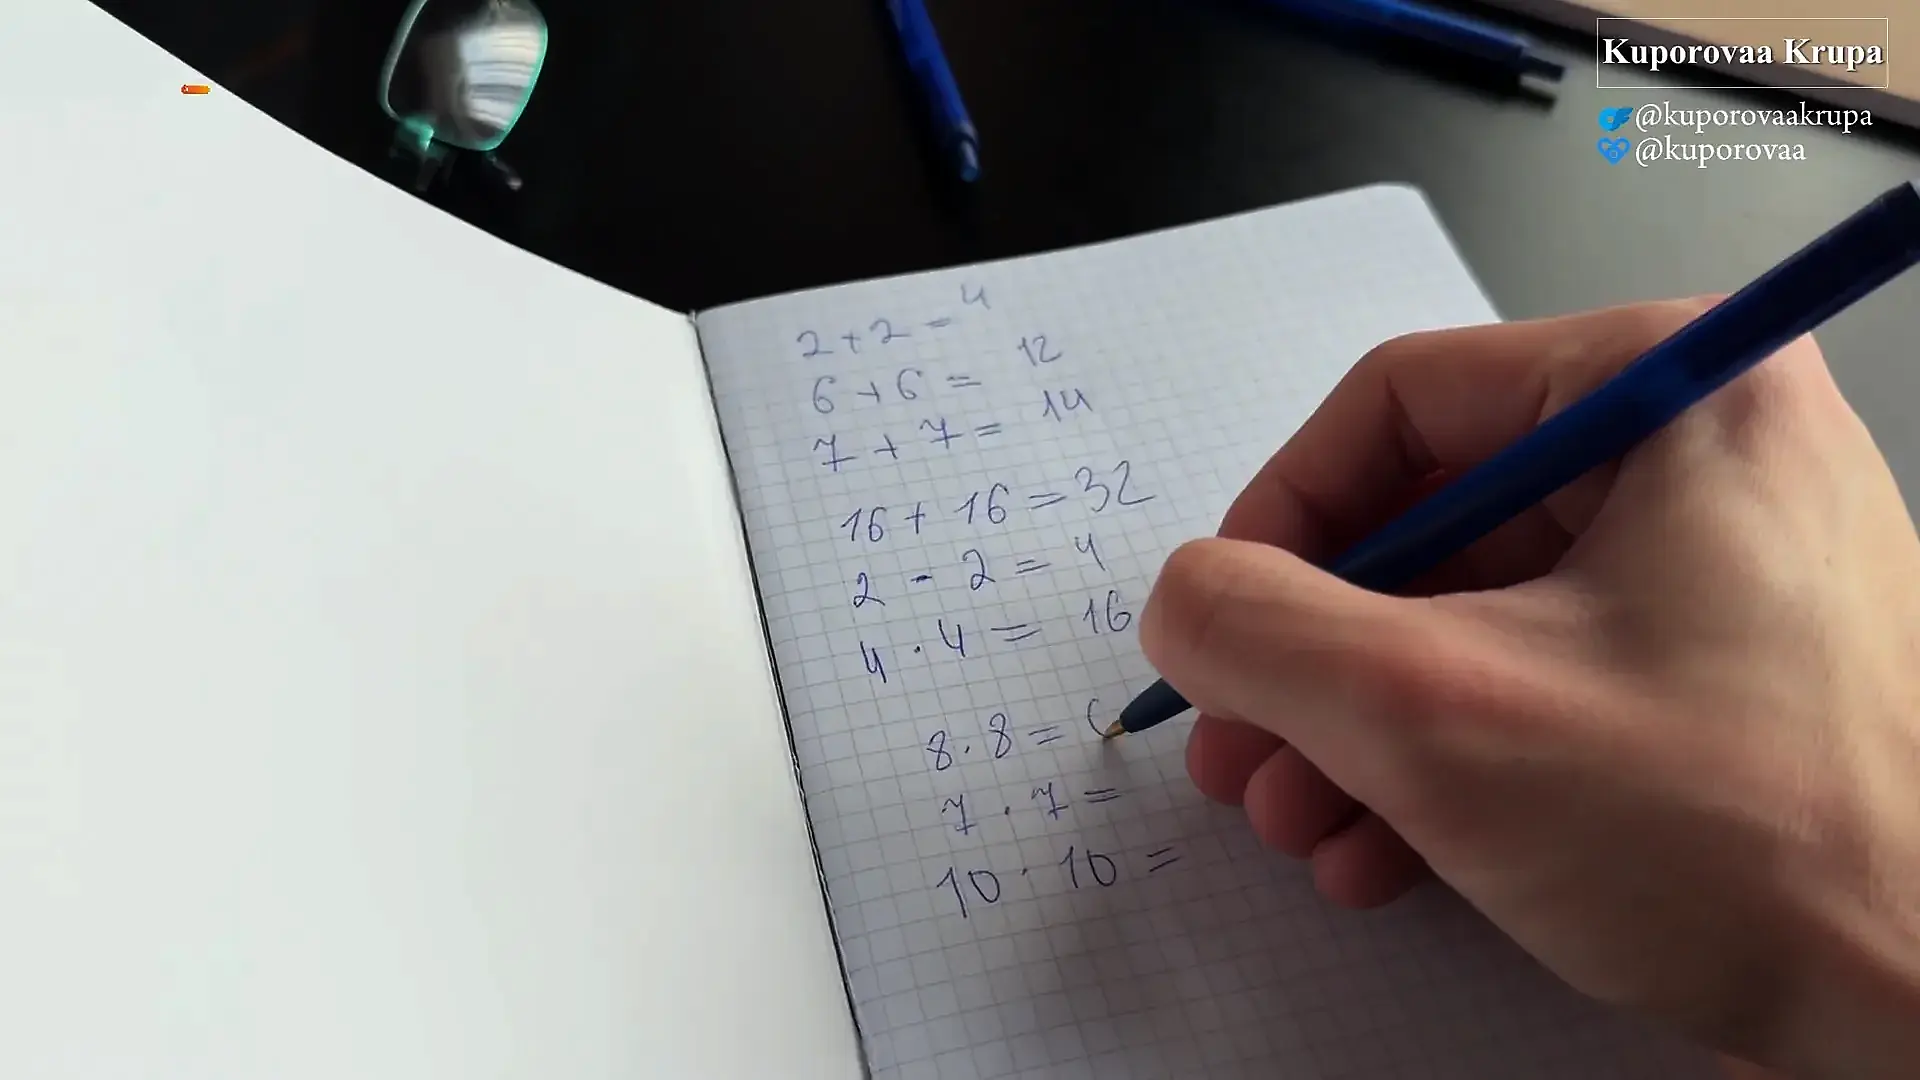 Kuporovaa Krupa
@kuporovaakrupa
@kuporovaa
2 + 2 = 4
6 + 6 = 12
7 + 7 = 14
16 + 16 = 32
2 · 2 = 4
4 · 4 = 16
8 · 8 =
7 · 7 =
10 · 10 =